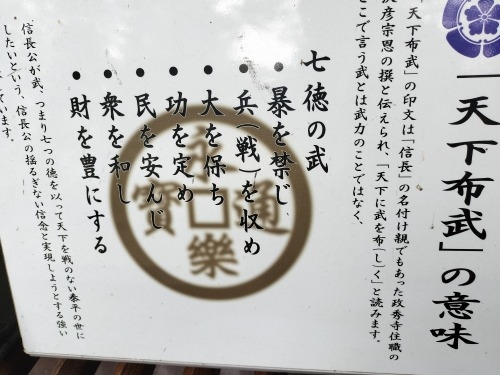 「天下布武」の意味
「天下布武」の印文は「信長」の名付け親でもあった政秀寺住職の
彦宗恩の撰と伝えられ、「天下に武を布(し)く」と読みます。
こで言う武とは武力のことではなく、
七徳の武
・暴を禁じ
・兵(戦)を収め
・大を保ち
・功を定め
・民を安んじ
・衆を和し
・財を豊にする
永樂通寳
信長公が武、つまり七つの徳を以って天下を戦のない泰平の世に
したいという、信長公の揺るぎない信念と実現しようとする強い